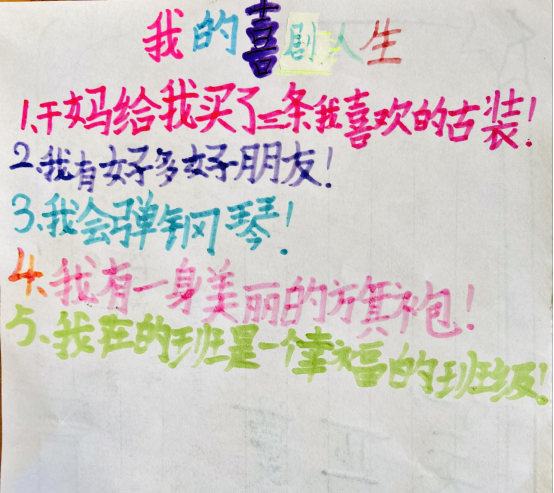 我的喜剧人生
1、干妈给我买了三条我喜欢的古装！
2、我有好多好朋友！
3、我会弹钢琴！
4、我有一身美丽的旗袍！
5、我在的班是一个幸福的班级！